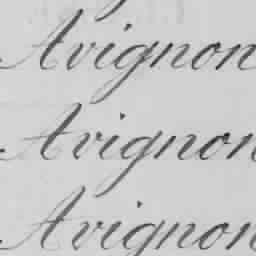 Avignon
Avignon
Avignon